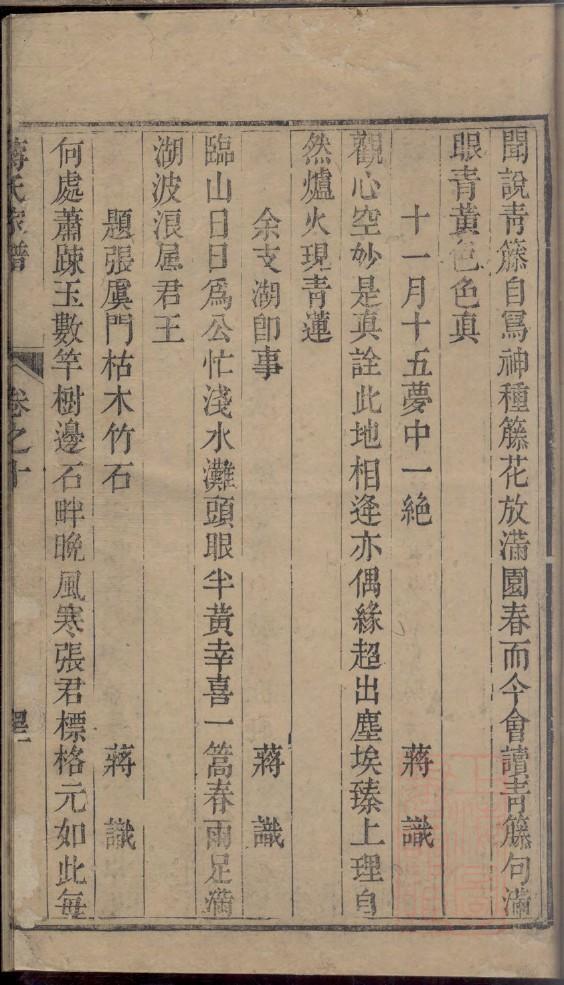 聞說青籐自爲神種籐花放滿園春而今會讀青籐句滿
眼青黃色色真
十一月十五夢中一絶 蔣識
觀心空妙是真詮此地相逄亦偶緣超出塵埃臻上理自
然爐火現青蓮
余支湖卽事 蔣識
臨山日日爲公忙淺水灘頭眼半黃幸喜一篙春雨足滿
湖波浪屬君王
題張虞門枯木竹石 蔣識
何處蕭踈玉數竿樹邊石畔晚風寒張君標格元如此每
蔣氏家譜 卷之十